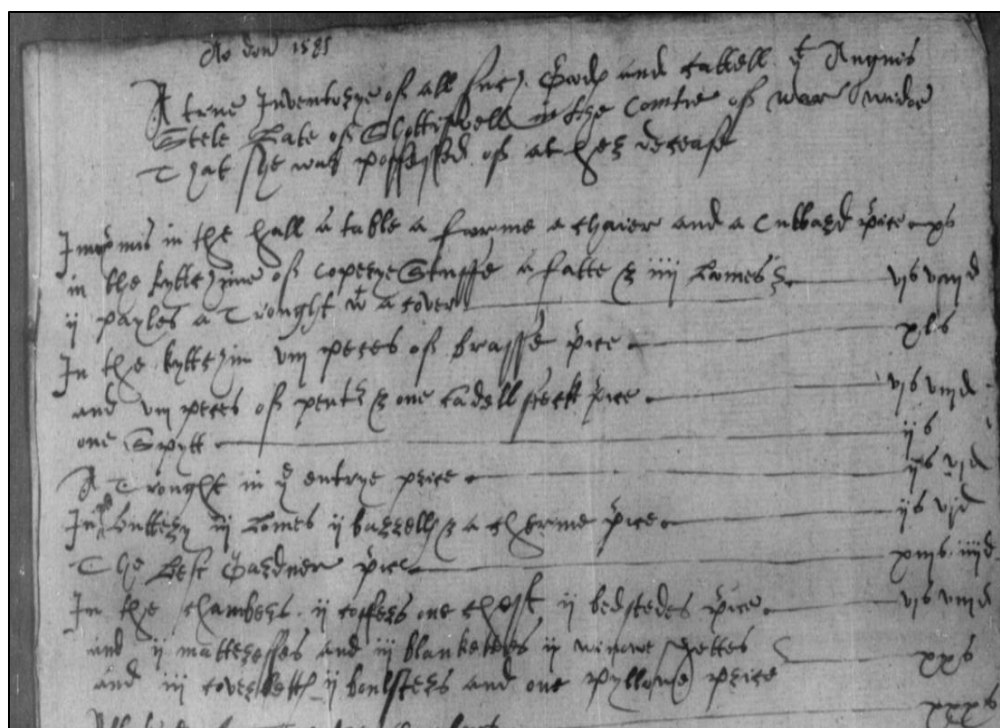 Ao dom 1585
A trewe Inventorye of all such goodes and cattell yt Angnes
Stele Late of Shottiswell in the Comtie of war widoe
That she was possessed of at her decease
Imprimis in the hall a table a forme a chaier and a Cubbard price xs
in the kyttchine of coperye Stuffe a fatte & iiii Lomes & vis viiid
ii payles a Trought wt a cover
In the kyttchin viii peces of brasse price xls
and viii peces of peuter & one candellsteck price vis viiid
one Spytt iis
A Trought in ye entrye price iis vid
In buttery iii Lomes ii barrells & a cherme price iis vid
The Lese Gardner price xiiis iiiid
In the chambers ii coffers one chest ii bedstedes price vis viiid
and ii matteresses and iii blanketes ii winowe shettes
and iii coverletts ii boulsters and one pyllowe price xxs
xxxs